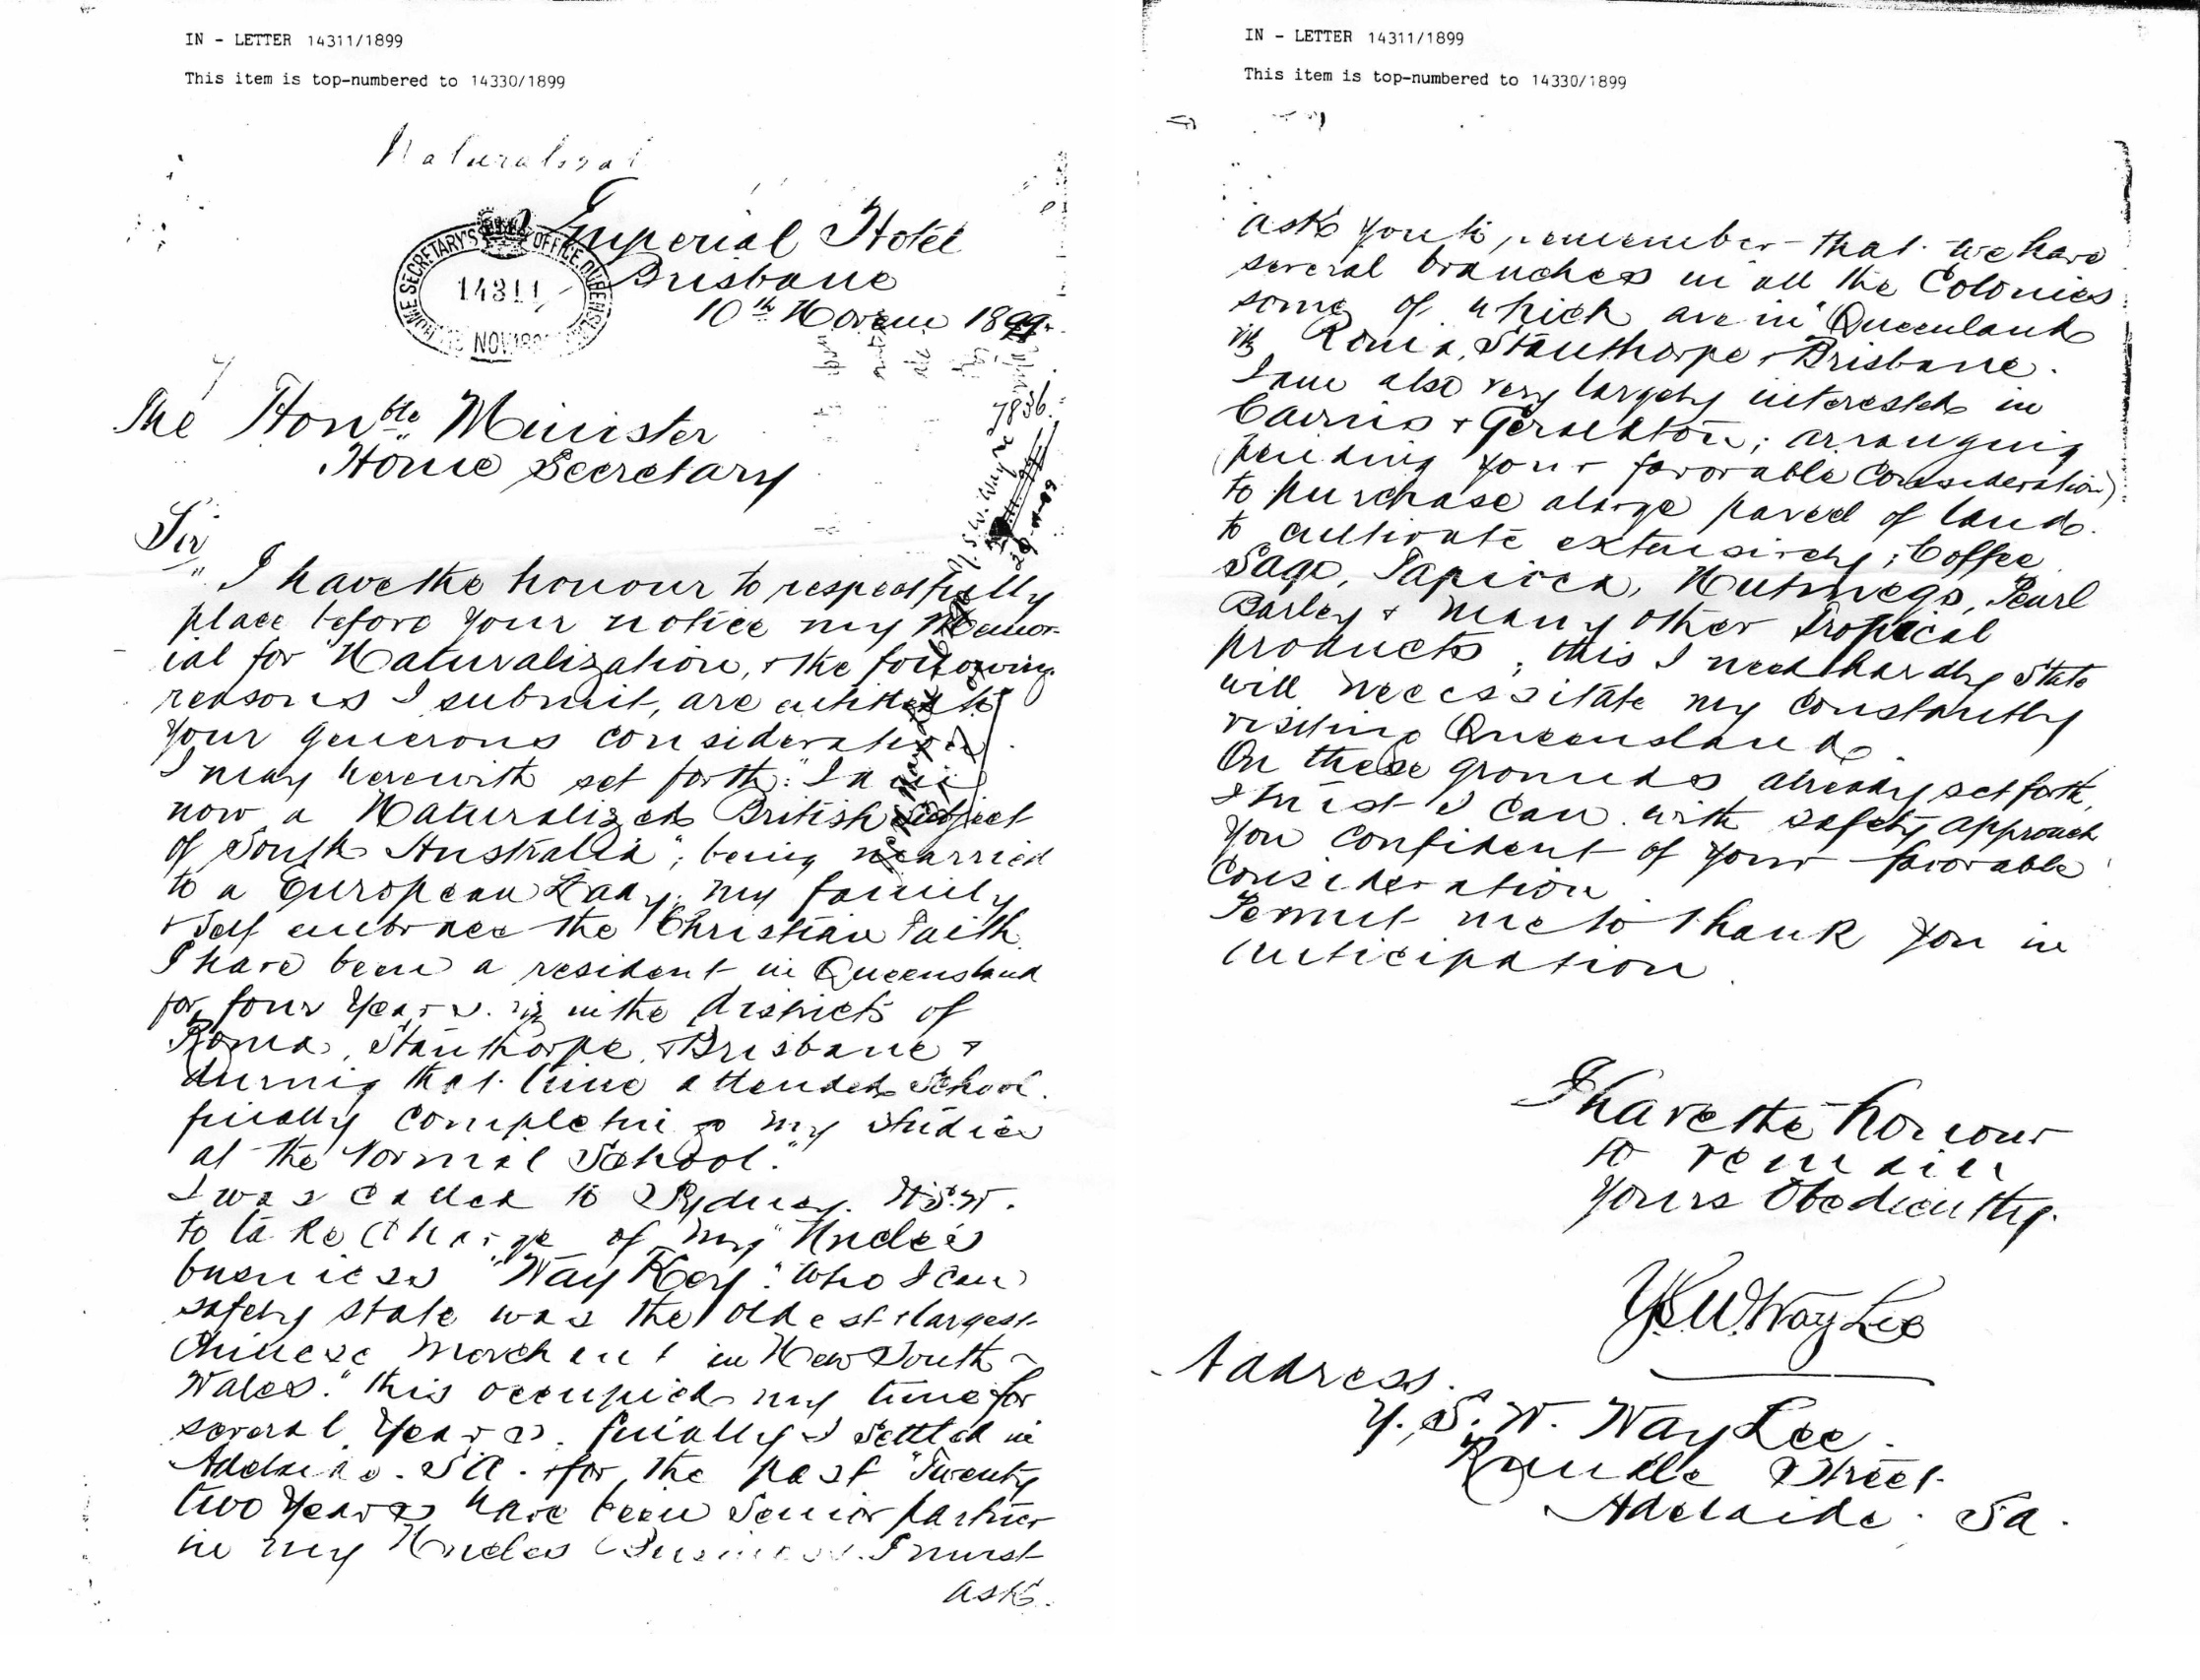 IN - LETTER 14311/1899
This item is top-numbered to 14330/1899
Naturalizat
Imperial Hotel
Brisbane
10th Novem 1899.
HOME SECRETARY'S OFFICE QUEENSLAND
14311
NOV 189
The Honble Minister
Home Secretary
Sir
"I have the honour to respectfully
place before your notice my Memor-
ial for "Naturalization, & the following
reasons I submit, are entitled to
your generous consideration.
I may herewith set forth: "I am
now a Naturalized British subject
of South Australia"; being married
to a European Lady, my family
& self embrace the Christian Faith.
I have been a resident in Queensland
for four years. viz in the districts of
Roma, Stanthorpe, & Brisbane &
during that time attended School.
finally completing my studies
at the Normal School."
I was called to Sydney. N.S.W.
to take charge of my Uncle's
business "Way Kee". Who I can
safely state was the oldest & largest
Chinese Merchant in New South
Wales." this occupied my time for
several years. finally I settled in
Adelaide. S.A. & for the past Twenty
two years have been Senior partner
in my Uncles Business. I must
ask.
Y.S.W. Way Lee
7836.
29-11-99
IN - LETTER 14311/1899
This item is top-numbered to 14330/1899
ask you to remember that we have
several branches in all the Colonies
some of which are in "Queenland
viz Roma, Stanthorpe & Brisbane.
I am also very largely interested in
Cairns & Geraldton; arranging
(pending your favorable Consideration)
to purchase a large parcel of land.
to cultivate extensively; Coffee
Sago, Tapioca, Nutmegs, Pearl
Barley & many other Tropical
products, this I need hardly state
will necessitate my constantly
visiting Queensland.
On these grounds already set forth,
I trust I can with safety approach
you confident of your favorable
consideration
Permit me to thank you in
anticipation.
I have the honour
to remain
Yours Obediently.
Y.S.W. Way Lee
Address.
Y. S. W. Way Lee.
Rundle Street
Adelaide. Sa.